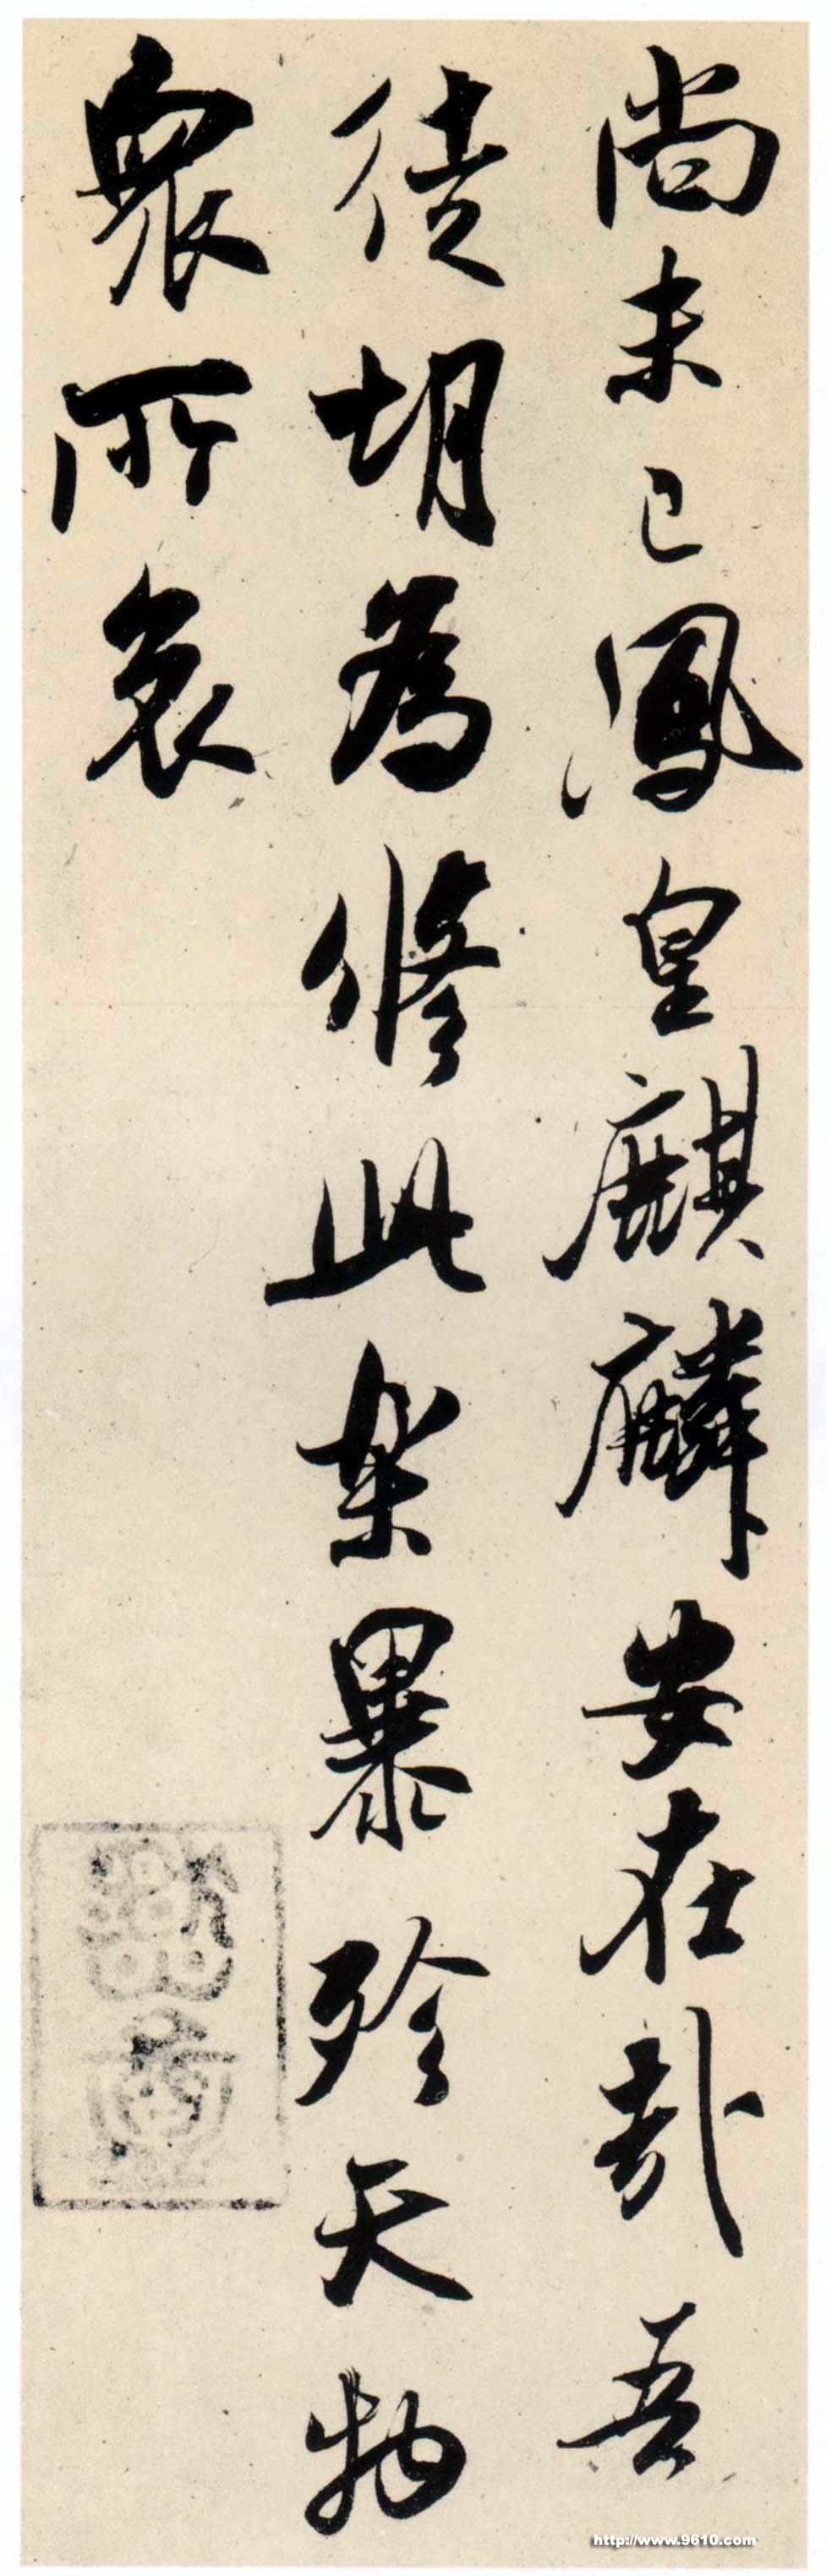 尚未已鳳皇麒麟安在哉吾
徒胡為脩此樂暴殄天物
眾所哀
http://www.9610.com